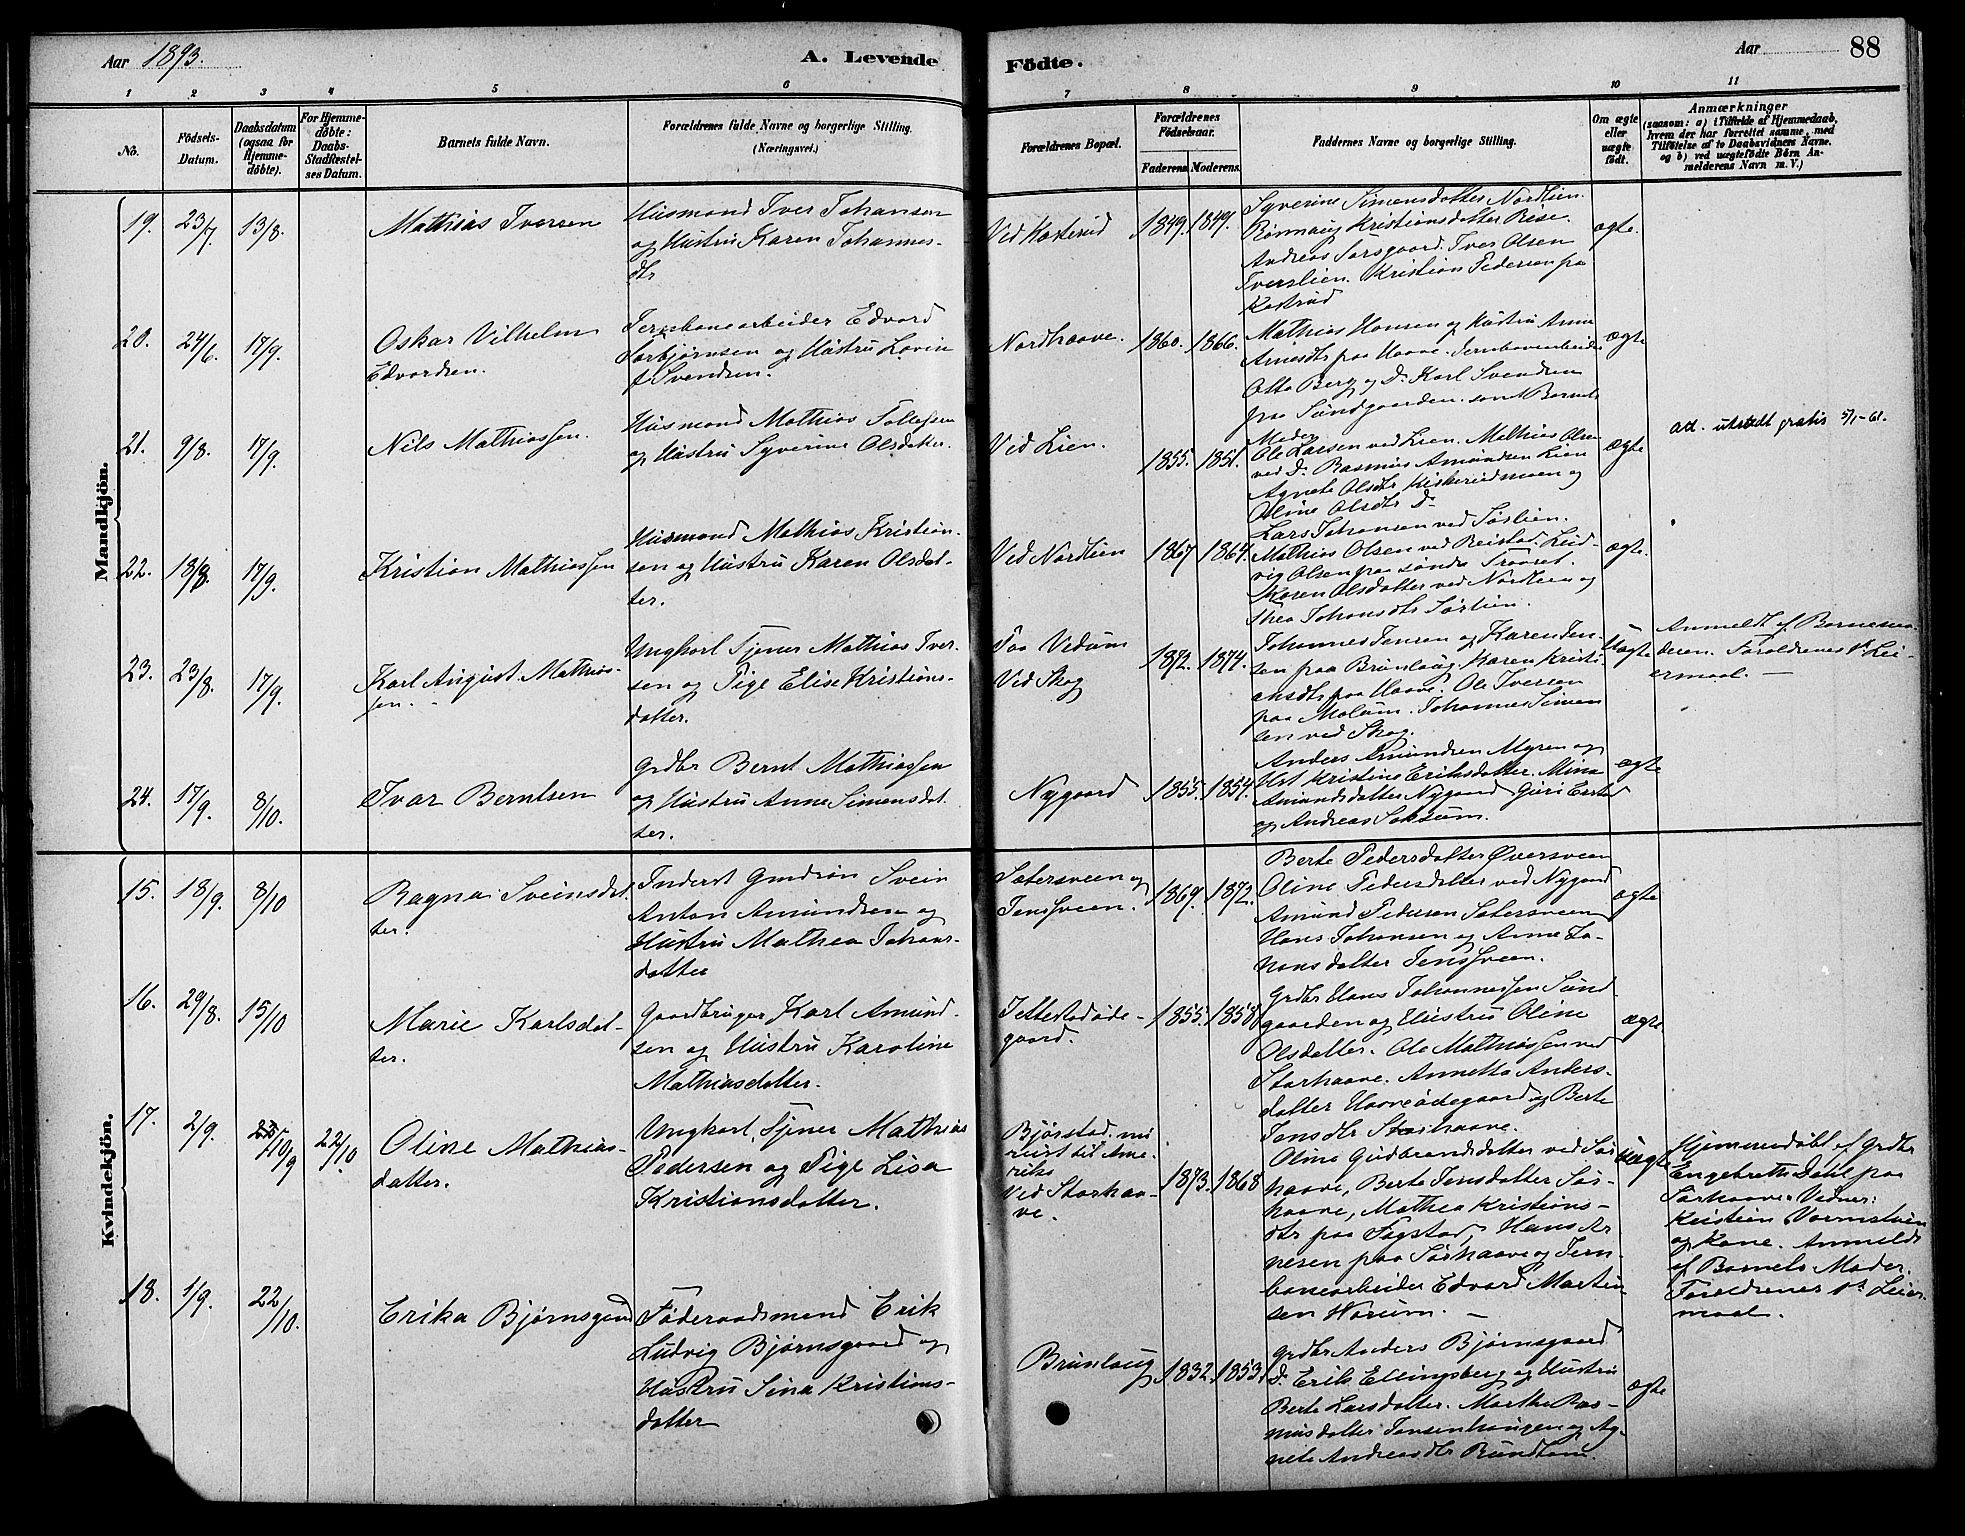 Aar 1893.
A. Levende Födte.
Aar 88
1 2 3 4 5 6 7 8 9 10 11
No.
Födsels-
Datum.
Daabsdatum
(ogsaa for
Hjemme-
döbte).
For Hjemme-
döbte:
Daabs-
Stadfæstel-
ses Datum.
Barnets fulde Navn.
Forældrenes fulde Navne og borgerlige Stilling.
(Næringsvei.)
Forældrenes Bopæl.
Forældrenes
Födselsaar.
Faderens Moderens.
Faddernes Navne og borgerlige Stilling.
Om ægte
eller
uægte
födt.
Anmærkninger
(saasom: a) i Tilfælde af Hjemmedaab,
hvem der har forrettet samme, med
Tilföielse af to Daabsvidners Navne,
og b) ved uægtefödte Börn An-
melderens Navn m. V.)
Mandkjön.
19. 23/7. 13/8.
Mathias Iversen
Husmand Iver Johansen
og Hustru Karen Johannes-
dtr
Ved Kosterud 1849. 1849.
Syverine Simensdatter Nordlien.
Rønnaug Kristiansdatter Reise.
Andreas Sørsgaard. Iver Olsen
Iverslien. Kristian Pedersen paa
Kostrud
ægte.
20. 24/6. 17/9.
Oskar Vilhelm
Edvardsen.
Jernbanearbeider Edvard
Torbjørnsen og Hustru Lovin
f Svendsen.
Nordhaave. 1860. 1866.
Mathias Hansen og Hustru Anne
Arnesdtr paa Haave. Jernbanearbeider
Otto Berg og D. Karl Svendsen
paa Sundgaarden samt Barnets
Moder
ægte
21. 9/8. 17/9.
Nils Mathiassen.
Husmand Mathias Tollefsen
og Hustru Syverine Olsdatter.
Ved Lien. 1855. 1851.
Ole Larsen ved Lien. Mathias Olsen
ved D. Rasmus Amundsen Lien
Agnete Olsdtr Kiskerudmoen og
Oline Olsdtr D-
ægte
att. utstedt gratis 5/1-61.
22. 18/8. 17/9.
Kristian Mathiassen
Husmand Mathias Kristian-
sen og Hustru Karen Olsdat-
ter.
Ved Nordlien 1867 1864.
Lars Johansen ved Sørlien.
Mathias Olsen ved Reistad. Lud-
vig Olsen paa søndre Traaset.
Karen Olsdatter ved Nordlien og
Thea Johansdtr Sørlien.
ægte.
23. 23/8. 17/9.
Karl August Mathias-
sen.
Ungkarl Tjener Mathias Iver-
sen og Pige Elise Kristians-
datter.
Paa Vedum
Ved Skog
1872. 1874.
Johannes Jensen og Karen Jen-
sen paa Brunlaug. Karen Kristi-
ansdtr paa Haave. Ole Iversen
paa Molum. Johannes Simen
sen ved Skog.
Uægte
Anmeldt af Barnemo-
deren. Forældrenes 1ste Lei-
ermaal. —
24. 17/9. 8/10.
Ivar Berntsen
Grdbr Bernt Mathiassen
og Hustru Anne Simensdat-
ter.
Nygaard 1855. 1854.
Anders Amundsen Myren og
Hst Kristine Eriksdatter. Mina
Amundsdatter Nygaard Guri
og Andreas Løksum.
ægte
Kvindekjön.
15. 18/9. 8/10
Ragna Sveinsdat-
ter.
Inderst Svein
Anton Amundsen og
Hustru Mathea Johans-
datter
Sætersveen og
Jenssveen.
1869. 1872.
Berte Pedersdatter Øversveen
Oline Pedersdatter ved Nygaard
Amund Pedersen Sætersveen
Hans Johansen og Anne Jo-
hansdatter Jenssveen.
ægte
16. 29/8. 15/10
Marie Karlsdat-
ter.
Gaardbruger Karl Amund-
sen og Hustru Karoline
Mathiasdatter.
Jettestadøde-
gaard.
1855. 1858
Grdbr Hans Johannessen Sund-
gaarden og Hustru Oline
Olsdatter. Ole Mathiassen ved
Storhaave. Annette Anders-
datter Haaveødegaard og Berte
Jensdtr Storhaave.
ægte
17. 2/9. 10/9 22/10.
Oline Mathias-
datter.
Ungkarl, Tjener Mathias
Pedersen og Pige Lisa
Kristiansdatter.
Bjørstad. nu
reist til Ame-
rika
Ved Storhaa-
ve.
1873. 1868
Oline Gudbrandsdatter ved Sør
haave, Berte Jensdatter Sør-
haave, Mathea Kristians-
dtr paa Fogstad, Hans Ar
nesen paa Sørhaave og Jern-
banearbeider Edvard Martin
sen Horum. —
uægte
Hjemmedøbt af Grdbr
Engebret Dahl paa
Sørhaave. Vidner:
Kristian Vormstuen
og Kone. Anmeldt
af Barnets Moder.
Forældrenes 1ste Leier
maal.
18. 1/9. 22/10.
Erika Bjørnsgaard
Føderaadsmand Erik
Ludvig Bjørnsgaard og
Hustru Sina Kristians-
datter
Brunlaug 1832. 1853.
Grdbr Anders Bjørnsgaard
D. Erik Ellingsberg og Hustru
Berte Larsdatter. Marthe Ras-
musdatter Jensenhaugen og Ag-
nete Andreasdtr Rundtom.
ægte